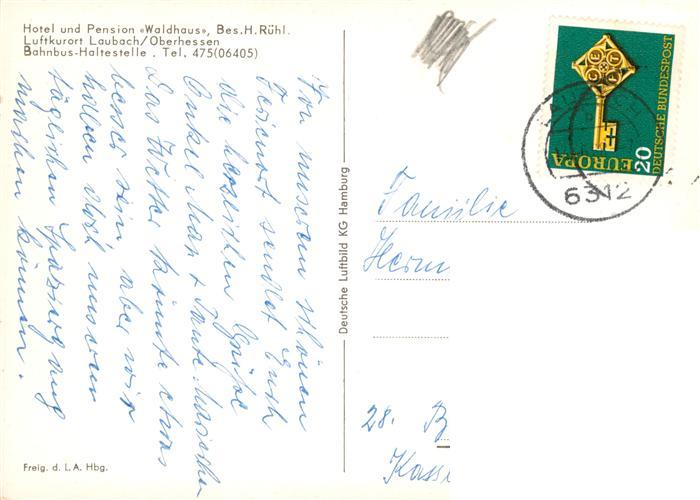 Hotel und Pension «Waldhaus», Bes. H. Rühl.
Luftkurort Laubach/Oberhessen
Bahnbus-Haltestelle . Tel. 475 (06405)
Von unserem schönen
Ferienort sendet Euch
die herzlichen Grüße
Onkel + Tante
Das Wetter könnte etwas
besser sein aber wir
hoffen daß unseren
täglichen Spaziergang
machen können.
Freig. d. L.A. Hbg.
Deutsche Luftbild KG Hamburg
DEUTSCHE BUNDESPOST
EUROPA
20
CEPT
6312
Familie
Herm
28. B
Kass